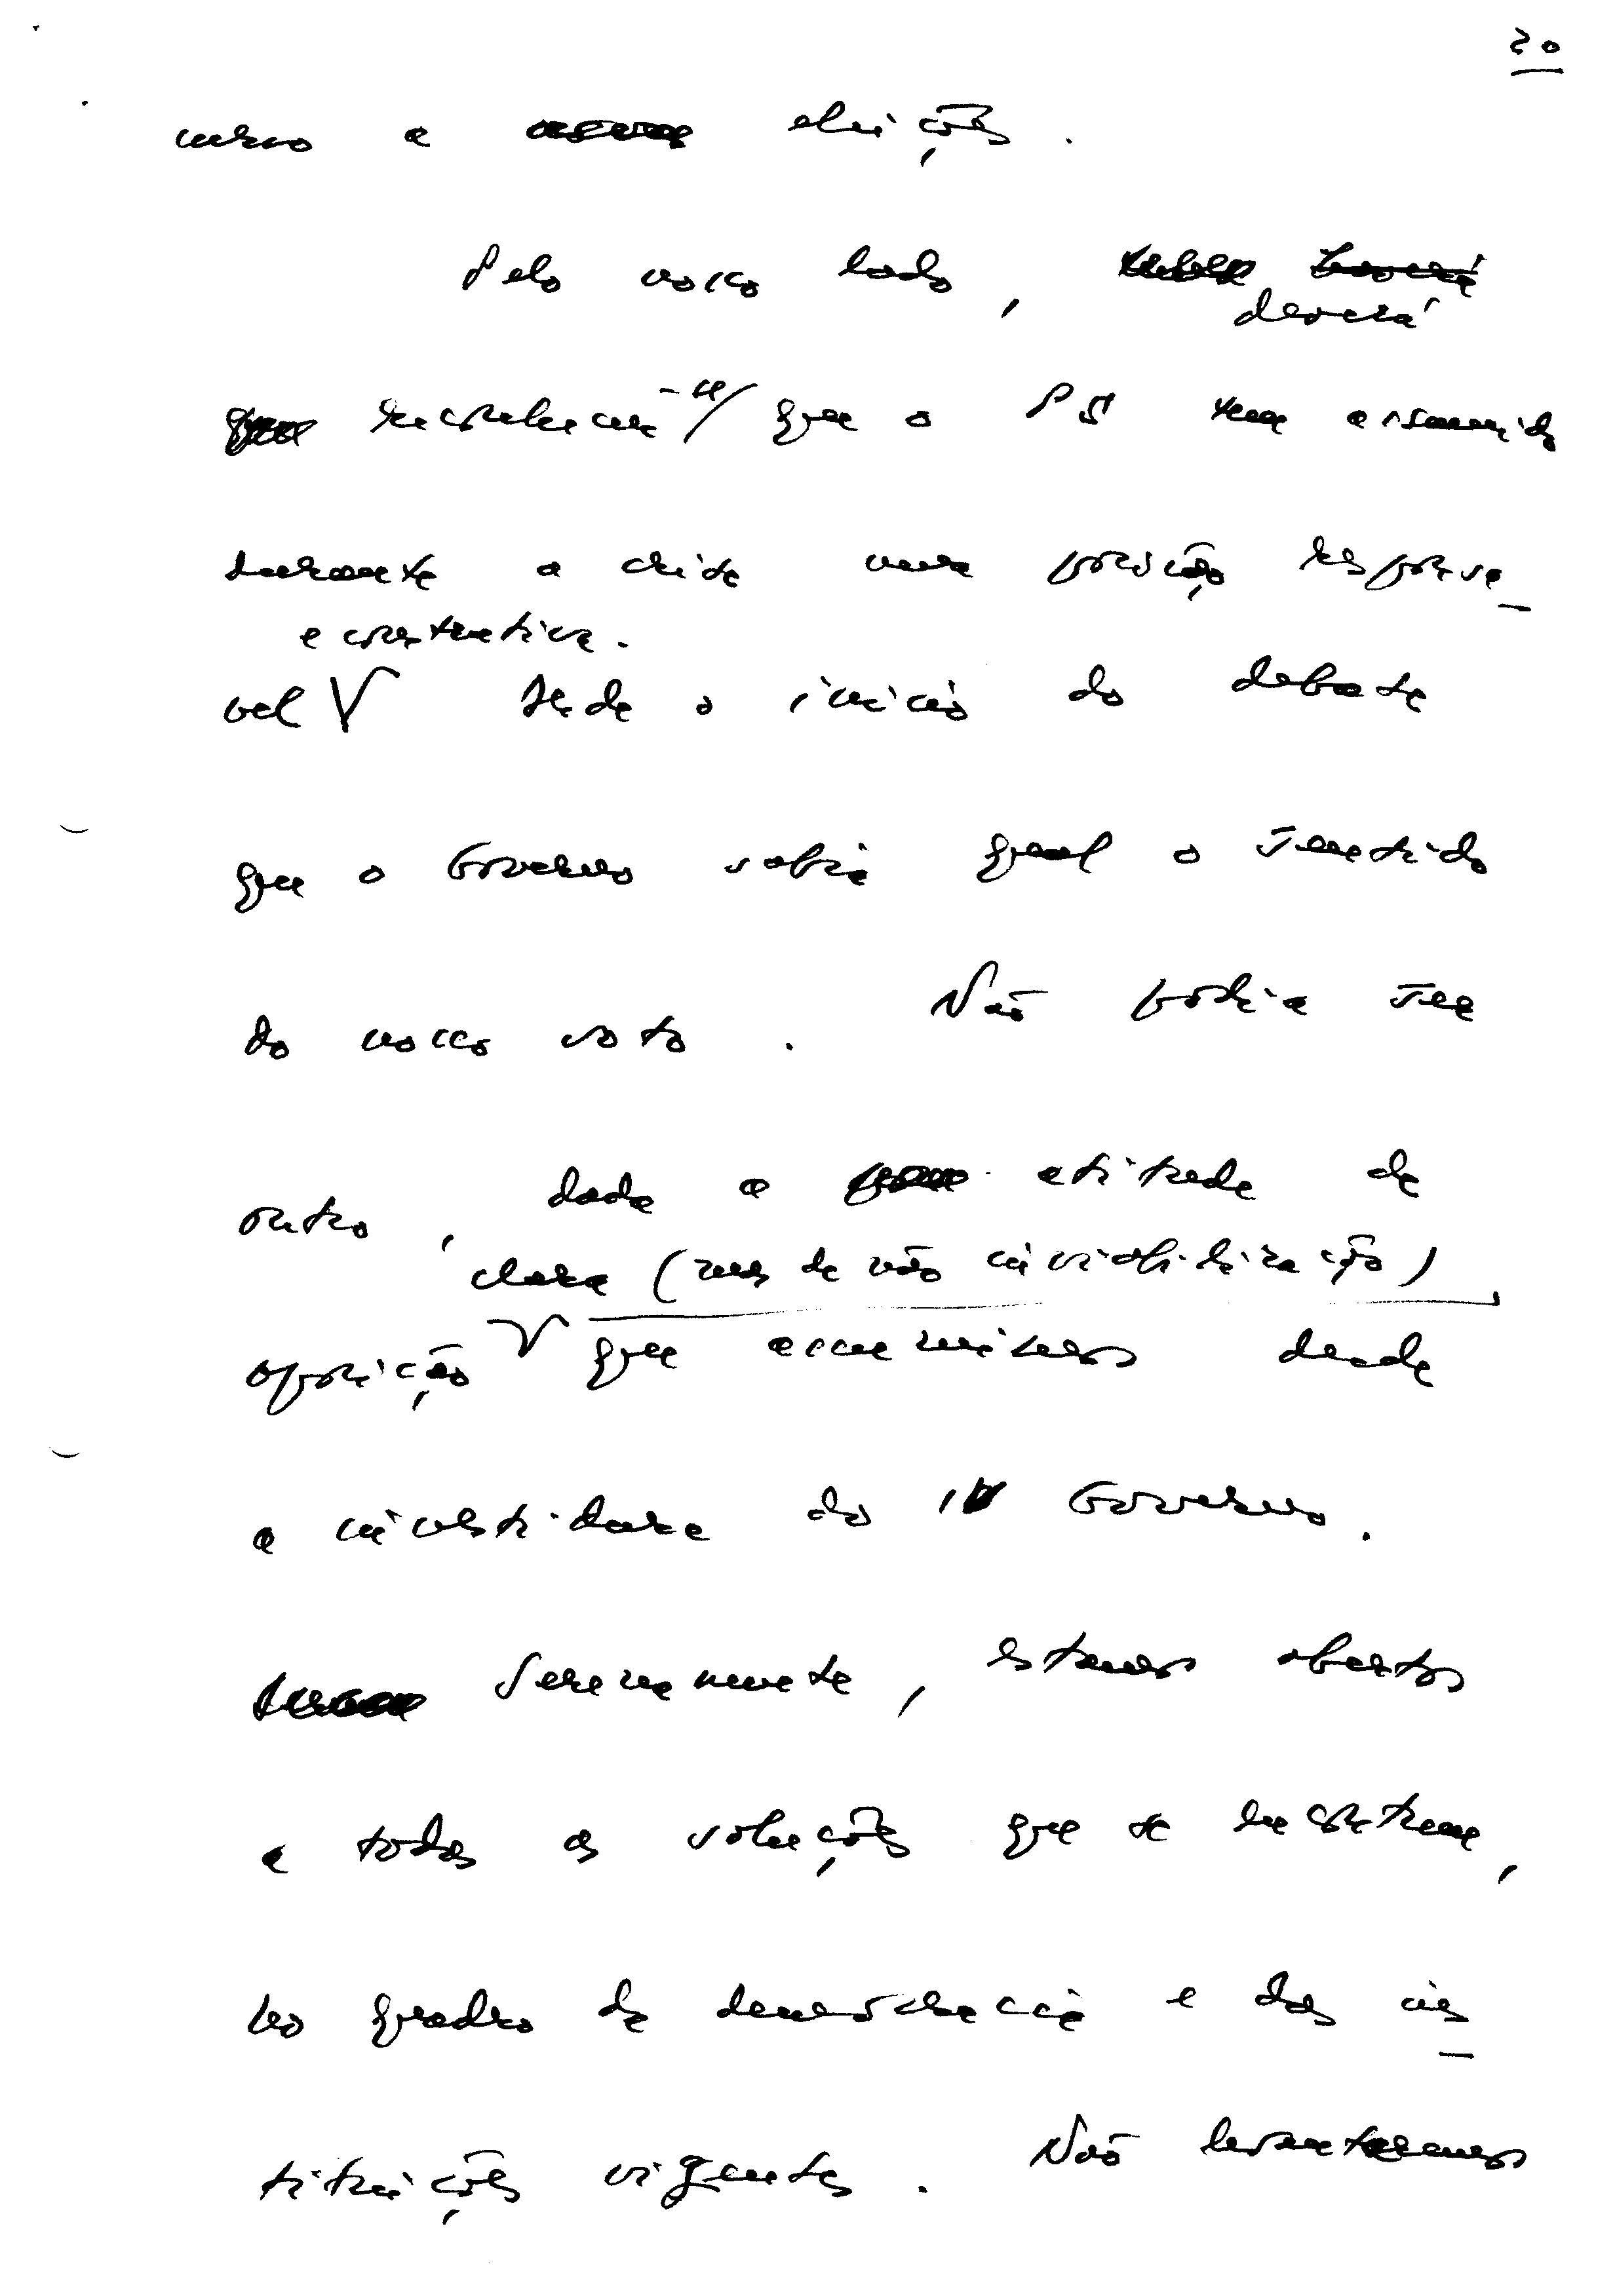 20
mesmo a eleições.
Pelo nosso lado,
deverá
reconhecer-se que o PS tem assumido
durante a crise uma posição responsá-
e construtiva.
vel V Desde o início do debate
que o Governo sabia qual o sentido
do nosso voto. Não podia ser
outro, dada a atitude de
clara (mas de não inviabilização)
oposição V que assumimos desde
a investidura do IV Governo.
Serenamente, estamos abertos
a todas as soluções que se encontrem,
no quadro da democracia e das ins-
tituições vigentes. Não levantaremos